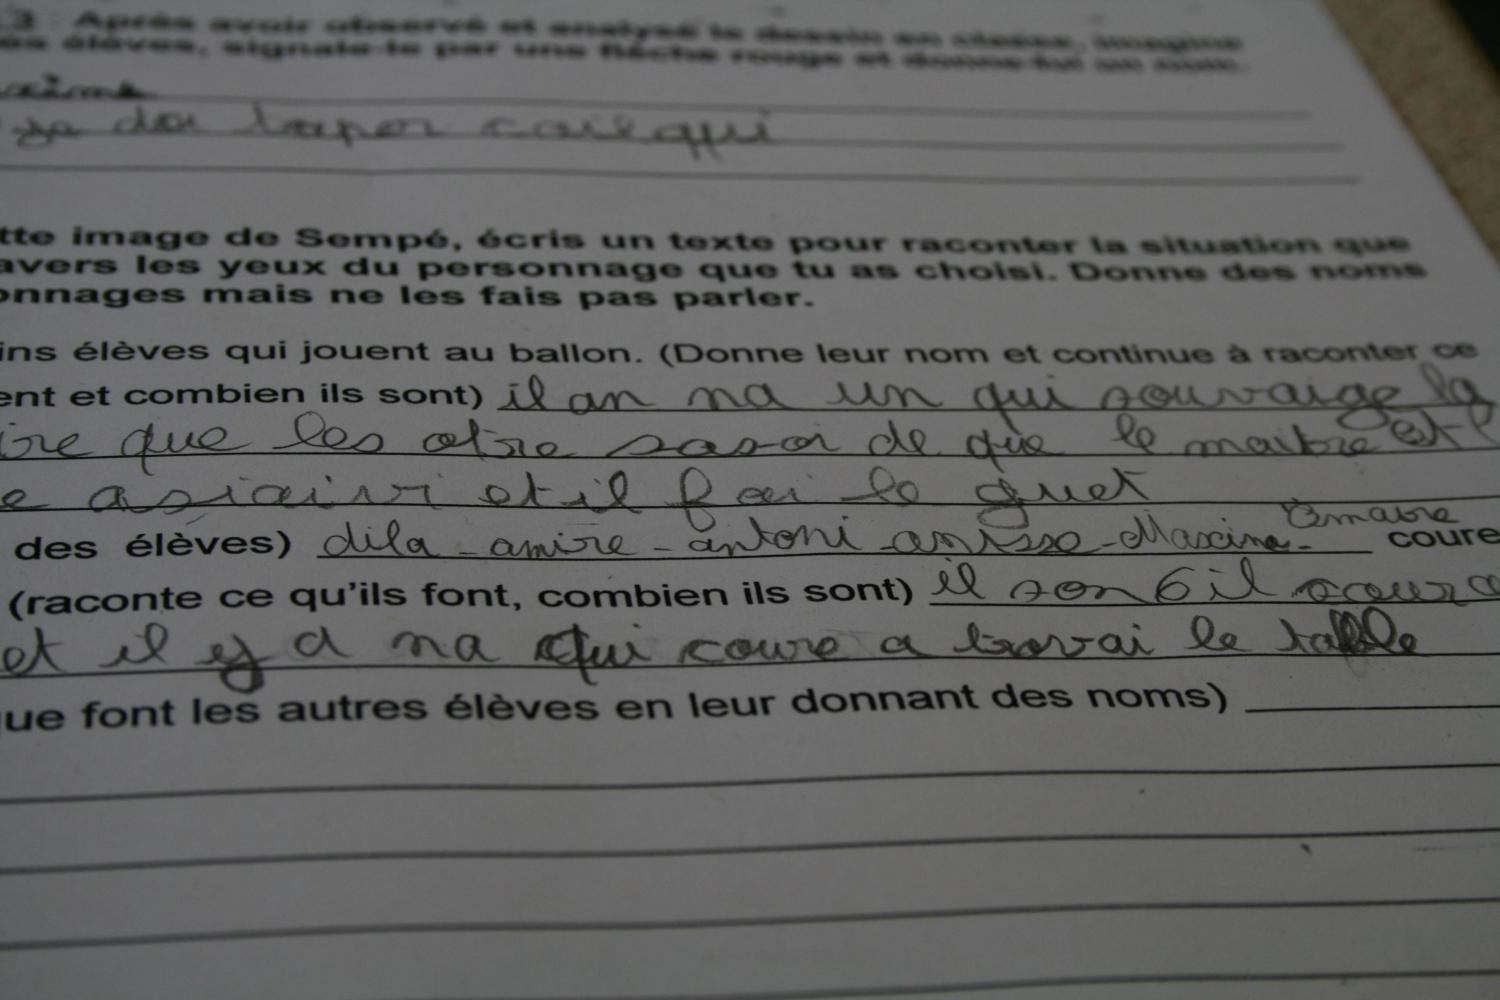 3 : Après avoir observé et analysé le dessin en classe, imagine
es élèves, signale-le par une flèche rouge et donne-lui un nom.
taper cailqqui
tte image de Sempé, écris un texte pour raconter la situation que
avers les yeux du personnage que tu as choisi. Donne des noms
onnages mais ne les fais pas parler.
ins élèves qui jouent au ballon. (Donne leur nom et continue à raconter ce
ent et combien ils sont) il an na un qui sourvaige la
ire que les otre sasoi de que le maitre et
e asiaivi et il fai le guet
Omabre
des élèves) dila - amire - antoni - anisse - Maxime - coure
(raconte ce qu'ils font, combien ils sont) il son 6 il coure
et il y a na qui coure a travai le table
ue font les autres élèves en leur donnant des noms)